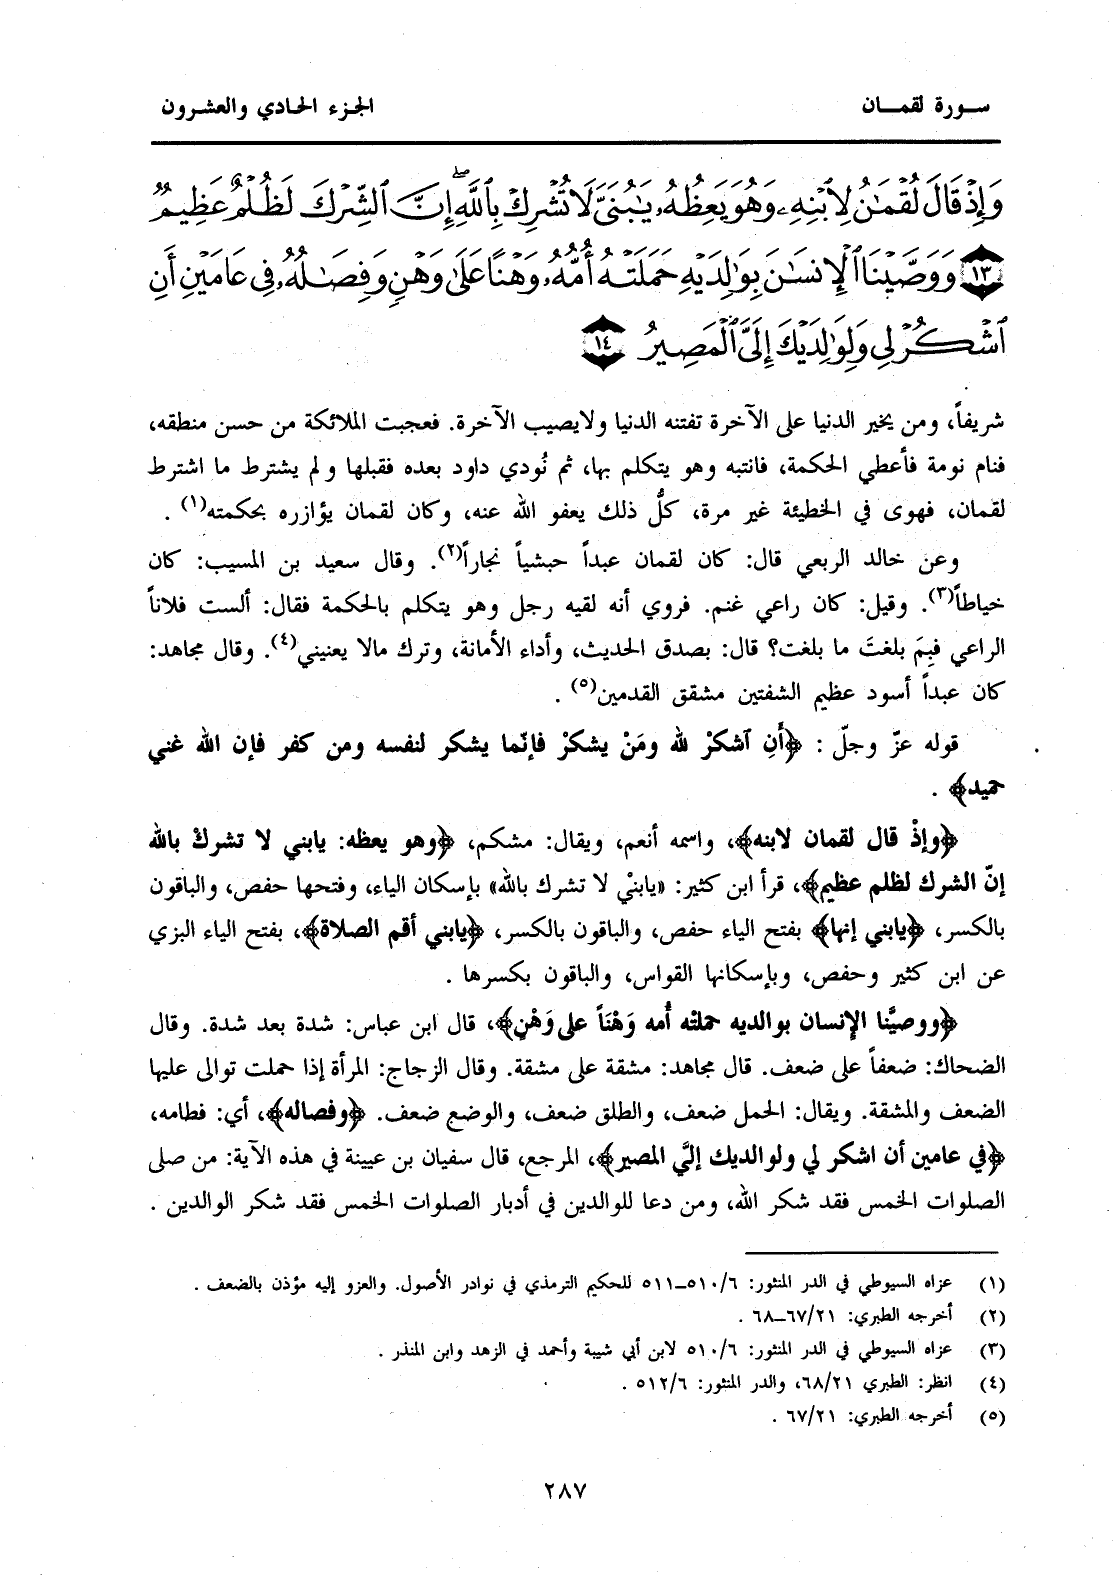 سورة لقمان
الجزء الحادي والعشرون
وَإِذْ قَالَ لُقْمَٰنُ لِٱبْنِهِۦ وَهُوَ يَعِظُهُۥ يَٰبُنَىَّ لَا تُشْرِكْ بِٱللَّهِ ۖ إِنَّ ٱلشِّرْكَ لَظُلْمٌ عَظِيمٌ
١٣ وَوَصَّيْنَا ٱلْإِنسَٰنَ بِوَٰلِدَيْهِ حَمَلَتْهُ أُمُّهُۥ وَهْنًا عَلَىٰ وَهْنٍ وَفِصَٰلُهُۥ فِى عَامَيْنِ أَنِ
ٱشْكُرْ لِى وَلِوَٰلِدَيْكَ إِلَىَّ ٱلْمَصِيرُ ١٤
شريفاً، ومن يخير الدنيا على الآخرة تفتنه الدنيا ولايصيب الآخرة. فعجبت الملائكة من حسن منطقه،
فنام نومة فأعطي الحكمة، فانتبه وهو يتكلم بها، ثم نُودي داود بعده فقبلها ولم يشترط ما اشترط
لقمان، فهوى في الخطيئة غير مرة، كلُّ ذلك يعفو الله عنه، وكان لقمان يؤازره بحكمته(١) .
وعن خالد الربعي قال: كان لقمان عبداً حبشياً نجاراً(٢). وقال سعيد بن المسيب: كان
خياطاً(٣). وقيل: كان راعي غنم. فروي أنه لقيه رجل وهو يتكلم بالحكمة فقال: ألست فلاناً
الراعي فبِمَ بلغتَ ما بلغت؟ قال: بصدق الحديث، وأداء الأمانة، وترك مالا يعنيني(٤). وقال مجاهد:
كان عبداً أسود عظيم الشفتين مشقق القدمين(٥) .
قوله عزّ وجلّ : ﴿أَنِ آشكرْ لله ومَنْ يشكرْ فإنّما يشكر لنفسه ومن كفر فإن الله غني
حميد﴾ .
﴿وإذْ قال لقمان لابنه﴾، واسمه أنعم، ويقال: مشكم، ﴿وهو يعظه: يابني لا تشركْ بالله
إنّ الشرك لظلم عظيم﴾، قرأ ابن كثير: «يابنيْ لا تشرك بالله» بإسكان الياء، وفتحها حفص، والباقون
بالكسر، ﴿يابني إنها﴾ بفتح الياء حفص، والباقون بالكسر، ﴿يابني أقم الصلاة﴾، بفتح الياء البزي
عن ابن كثير وحفص، وبإسكانها القواس، والباقون بكسرها .
﴿ووصيَّنا الإنسان بوالديه حملته أُمه وَهْنَاً على وَهْنٍ﴾، قال ابن عباس: شدة بعد شدة. وقال
الضحاك: ضعفاً على ضعف. قال مجاهد: مشقة على مشقة. وقال الزجاج: المرأة إذا حملت توالى عليها
الضعف والمشقة. ويقال: الحمل ضعف، والطلق ضعف، والوضع ضعف. ﴿وفصاله﴾، أي: فطامه،
﴿في عامين أن اشكر لي ولوالديك إليَّ المصير﴾، المرجع، قال سفيان بن عيينة في هذه الآية: من صلى
الصلوات الخمس فقد شكر الله، ومن دعا للوالدين في أدبار الصلوات الخمس فقد شكر الوالدين .
(١) عزاه السيوطي في الدر المنثور: ٥١٠/٦ـ٥١١ للحكيم الترمذي في نوادر الأصول. والعزو إليه مؤذن بالضعف .
(٢) أخرجه الطبري: ٦٧/٢١ـ٦٨ .
(٣) عزاه السيوطي في الدر المنثور: ٥١٠/٦ لابن أبي شيبة وأحمد في الزهد وابن المنذر .
(٤) انظر: الطبري ٦٨/٢١، والدر المنثور: ٥١٢/٦ .
(٥) أخرجه الطبري: ٦٧/٢١ .
٢٨٧